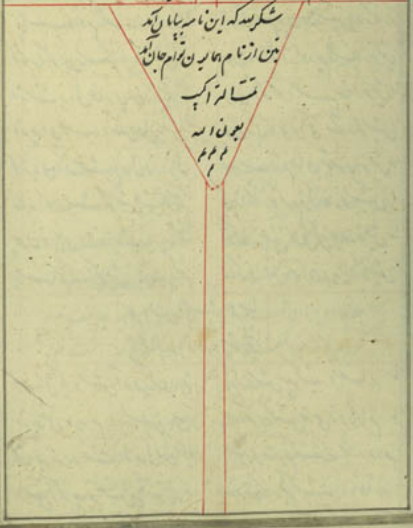 شکر لله که این نامه بپایان آمد
تن از نام همایون توام جان آمد
تمت التراکیب
بعون الله
م م م
م